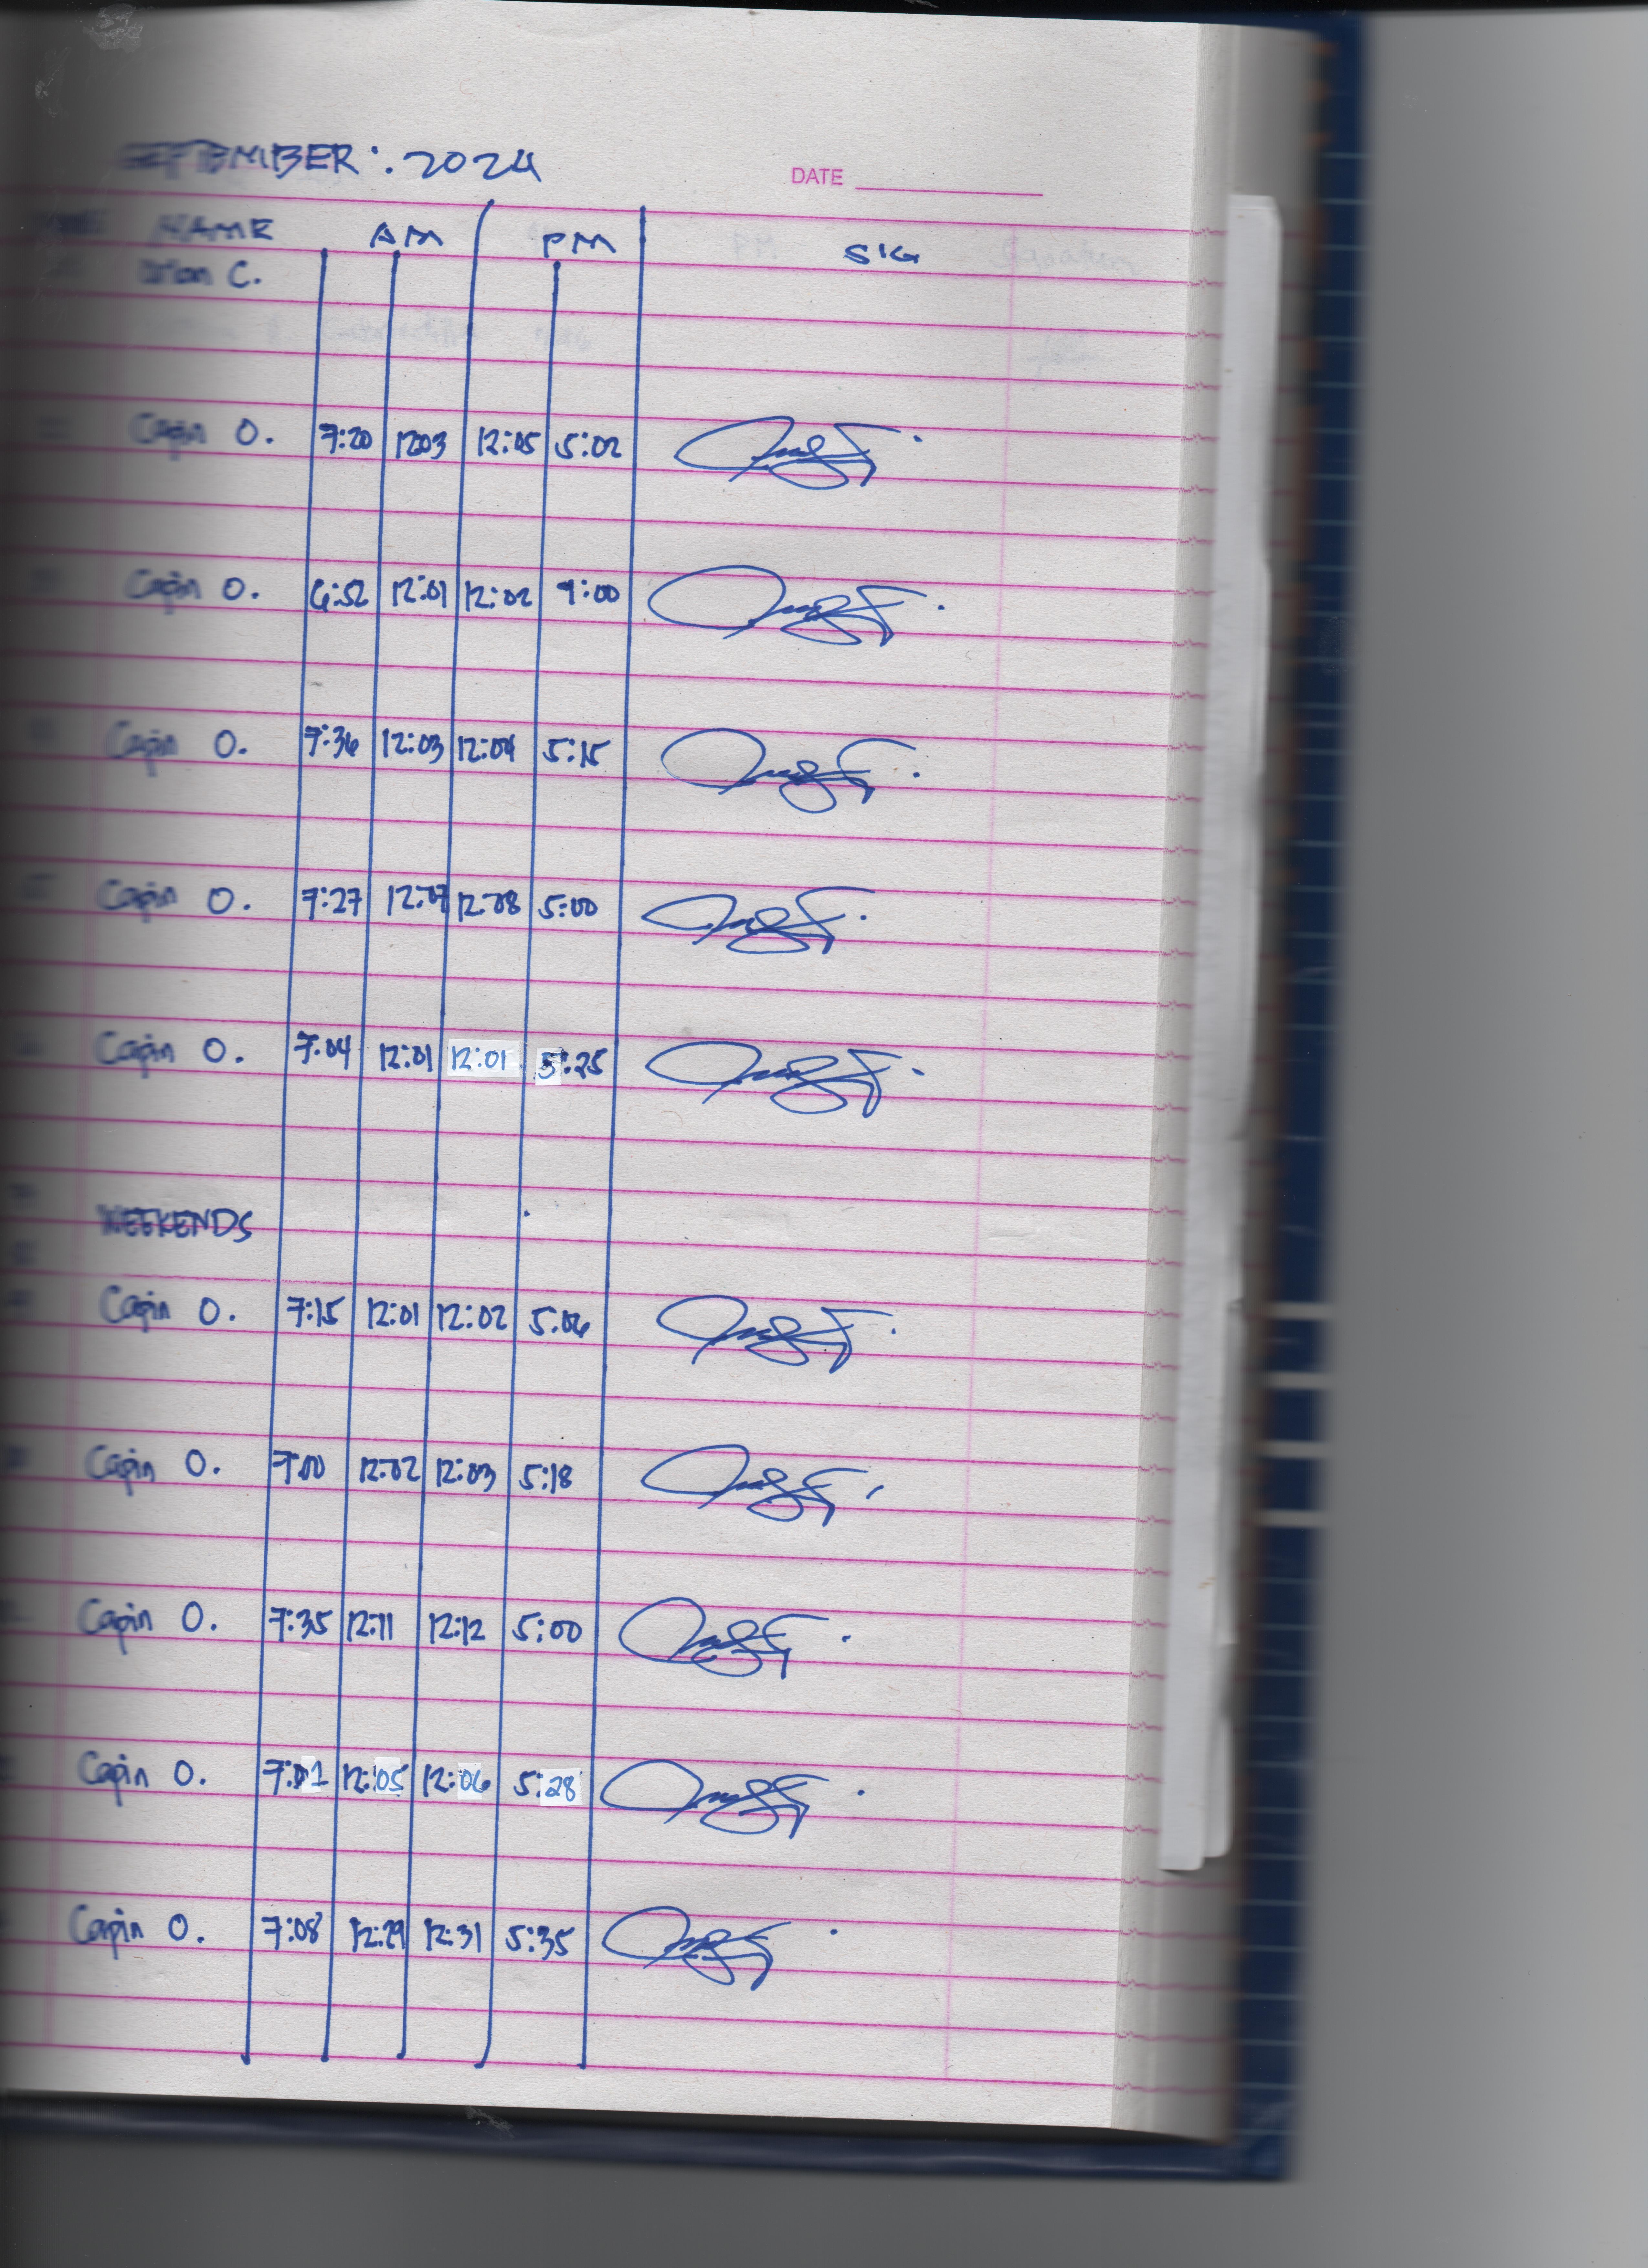 SEPTEMBER : 2024
DATE
NAME AM PM SIG
C.
Capin O. 7:20 1203 12:05 5:02
Capin O. 6:52 12:01 12:02 9:00
Capin O. 7:36 12:03 12:04 5:15
Capin O. 7:27 12:07 12:08 5:00
Capin O. 7:04 12:01 12:01 5:25
WEEKENDS
Capin O. 7:15 12:01 12:02 5:06
Capin O. 7:00 12:02 12:03 5:18
Capin O. 7:35 12:11 12:12 5:00
Capin O. 7:01 12:05 12:06 5:28
Capin O. 7:08 12:29 12:31 5:35